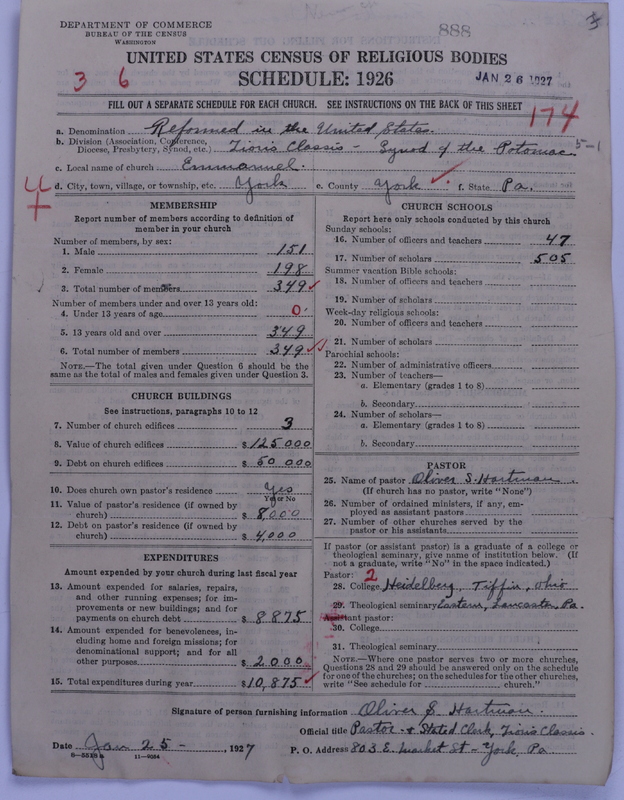 DEPARTMENT OF COMMERCE
BUREAU OF THE CENSUS
WASHINGTON
888
UNITED STATES CENSUS OF RELIGIOUS BODIES
SCHEDULE: 1926
3 6
JAN 26 1927
FILL OUT A SEPARATE SCHEDULE FOR EACH CHURCH. SEE INSTRUCTIONS ON THE BACK OF THIS SHEET
174
a. Denomination Reformed in the United States.
b. Division (Association, Conference, Diocese, Presbytery, Synod, etc.) Zion's Classis - Synod of the Potomac 5-1
c. Local name of church Emmanuel.
d. City, town, village, or township, etc. York e. County York f. State Pa.
MEMBERSHIP
Report number of members according to definition of
member in your church
Number of members, by sex:
1. Male 151
2. Female 198
3. Total number of members 349
Number of members under and over 13 years old:
4. Under 13 years of age 0
5. 13 years old and over 349
6. Total number of members 349
NOTE.—The total given under Question 6 should be the
same as the total of males and females given under Question 3.
CHURCH BUILDINGS
See instructions, paragraphs 10 to 12
7. Number of church edifices 3
8. Value of church edifices $125000
9. Debt on church edifices $50 000
10. Does church own pastor's residence Yes
Yes or No
11. Value of pastor's residence (if owned by
church) $8,000
12. Debt on pastor's residence (if owned by
church) $4,000
EXPENDITURES
Amount expended by your church during last fiscal year
13. Amount expended for salaries, repairs,
and other running expenses; for im-
provements or new buildings; and for
payments on church debt $8875
14. Amount expended for benevolences, in-
cluding home and foreign missions; for
denominational support; and for all
other purposes $2000
15. Total expenditures during year $10,875
CHURCH SCHOOLS
Report here only schools conducted by this church
Sunday schools:
16. Number of officers and teachers 47
17. Number of scholars 505
Summer vacation Bible schools:
18. Number of officers and teachers
19. Number of scholars
Week-day religious schools:
20. Number of officers and teachers
21. Number of scholars
Parochial schools:
22. Number of administrative officers
23. Number of teachers—
a. Elementary (grades 1 to 8)
b. Secondary
24. Number of scholars—
a. Elementary (grades 1 to 8)
b. Secondary
PASTOR
25. Name of pastor Oliver S. Hartman.
(If church has no pastor, write "None")
26. Number of ordained ministers, if any, em-
ployed as assistant pastors
27. Number of other churches served by the
pastor or his assistants
If pastor (or assistant pastor) is a graduate of a college or
theological seminary, give name of institution below. (If
not a graduate, write "No" in the space indicated.)
Pastor: 2
28. College Heidelberg, Tiffin, Ohio
29. Theological seminary Eastern, Lancaster, Pa.
Assistant pastor:
30. College
31. Theological seminary
NOTE.—Where one pastor serves two or more churches,
Questions 28 and 29 should be answered only on the schedule
for one of the churches; on the schedules for the other churches,
write "See schedule for church."
Signature of person furnishing information Oliver S. Hartman.
Official title Pastor & Stated Clerk, Zion's Classis.
Date Jan 25 - , 1927
P. O. Address 803 E. Market St - York, Pa
8-5518a 11-9034